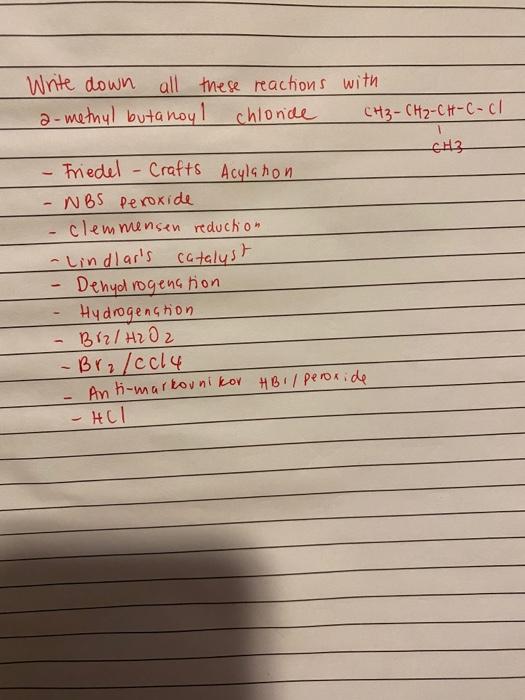 Write down all these reactions with
2-methyl butanoyl chloride CH3-CH2-CH-C-Cl
CH3
- Friedel - Crafts Acylation
- NBS peroxide
- Clemmensen reduction
- Lindlar's catalyst
- Dehydrogenation
- Hydrogenation
- Br2/H2O2
- Br2/CCl4
- Anti-markovnikov HBr/peroxide
- HCl